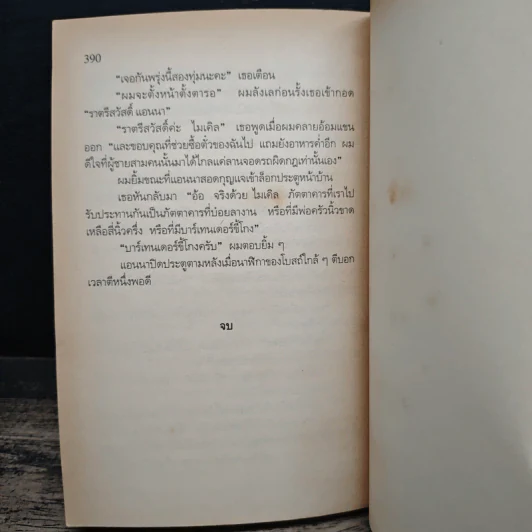 390
“เจอกันพรุ่งนี้สองทุ่มนะคะ” เธอเตือน
“ผมจะตั้งหน้าตั้งตารอ” ผมลังเลก่อนรั้งเธอเข้ากอด
“ราตรีสวัสดิ์ แอนนา”
“ราตรีสวัสดิ์ค่ะ ไมเคิล” เธอพูดเมื่อผมคลายอ้อมแขน
ออก “และขอบคุณที่ช่วยซื้อตั๋วของฉันไป แถมยังอาหารค่ำอีก ผม
ดีใจที่ผู้ชายสามคนนั้นมาได้ไกลแค่ลานจอดรถผิดกฎเท่านั้นเอง”
ผมยิ้มขณะที่แอนนาสอดกุญแจเข้าล็อกประตูหน้าบ้าน
เธอหันกลับมา “อ้อ จริงด้วย ไมเคิล ภัตตาคารที่เราไป
รับประทานกันเป็นภัตตาคารที่ปล่อยลางาน หรือที่มีพ่อครัวนิ้วขาด
เหลือสี่นิ้วครึ่ง หรือที่มีบาร์เทนเดอร์ขี้โกง”
“บาร์เทนเดอร์ขี้โกงครับ” ผมตอบยิ้ม ๆ
แอนนาปิดประตูตามหลังเมื่อนาฬิกาของโบสถ์ใกล้ ๆ ตีบอก
เวลาตีหนึ่งพอดี
จบ